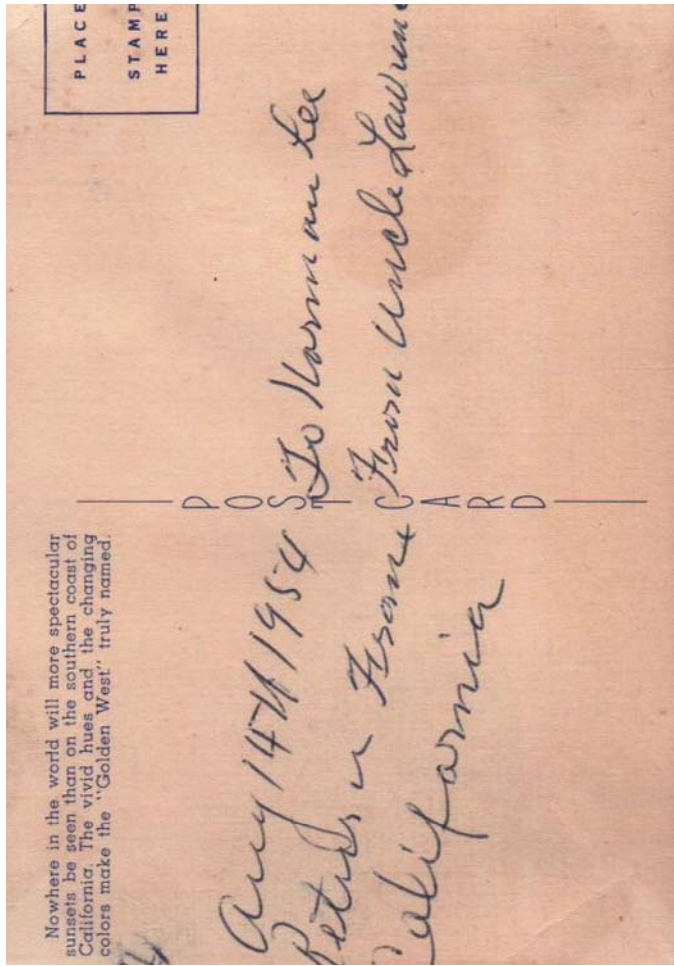 Nowhere in the world will more spectacular
sunsets be seen than on the southern coast of
California. The vivid hues and the changing
colors make the "Golden West" truly named.
PLACE
STAMP
HERE
POST CARD
Aug 14th 1954 To Norman Lee
From From Uncle
California